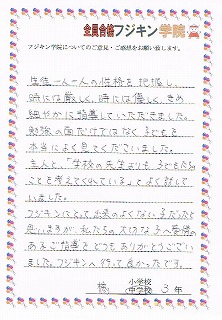 全員合格フジキン学院
フジキン学院についてのご意見・ご感想をお願い致します。
生徒一人一人の性格を把握し、
時には厳しく、時には優しく、きめ
細やかに指導していただきました。
勉強の面だけではなく子どもを
本当によく見てくださいました。
主人と「学校の先生よりも子どもたちの
ことを考えてくれている」とよく話して
いました。
フジキンにとって出来のよくない子だったと
思いますが、私たちの大切な子へ愛情の
あるご指導をどうもありがとうござい
ました。フジキンへ行って良かったです。
小学校
中学校 3年